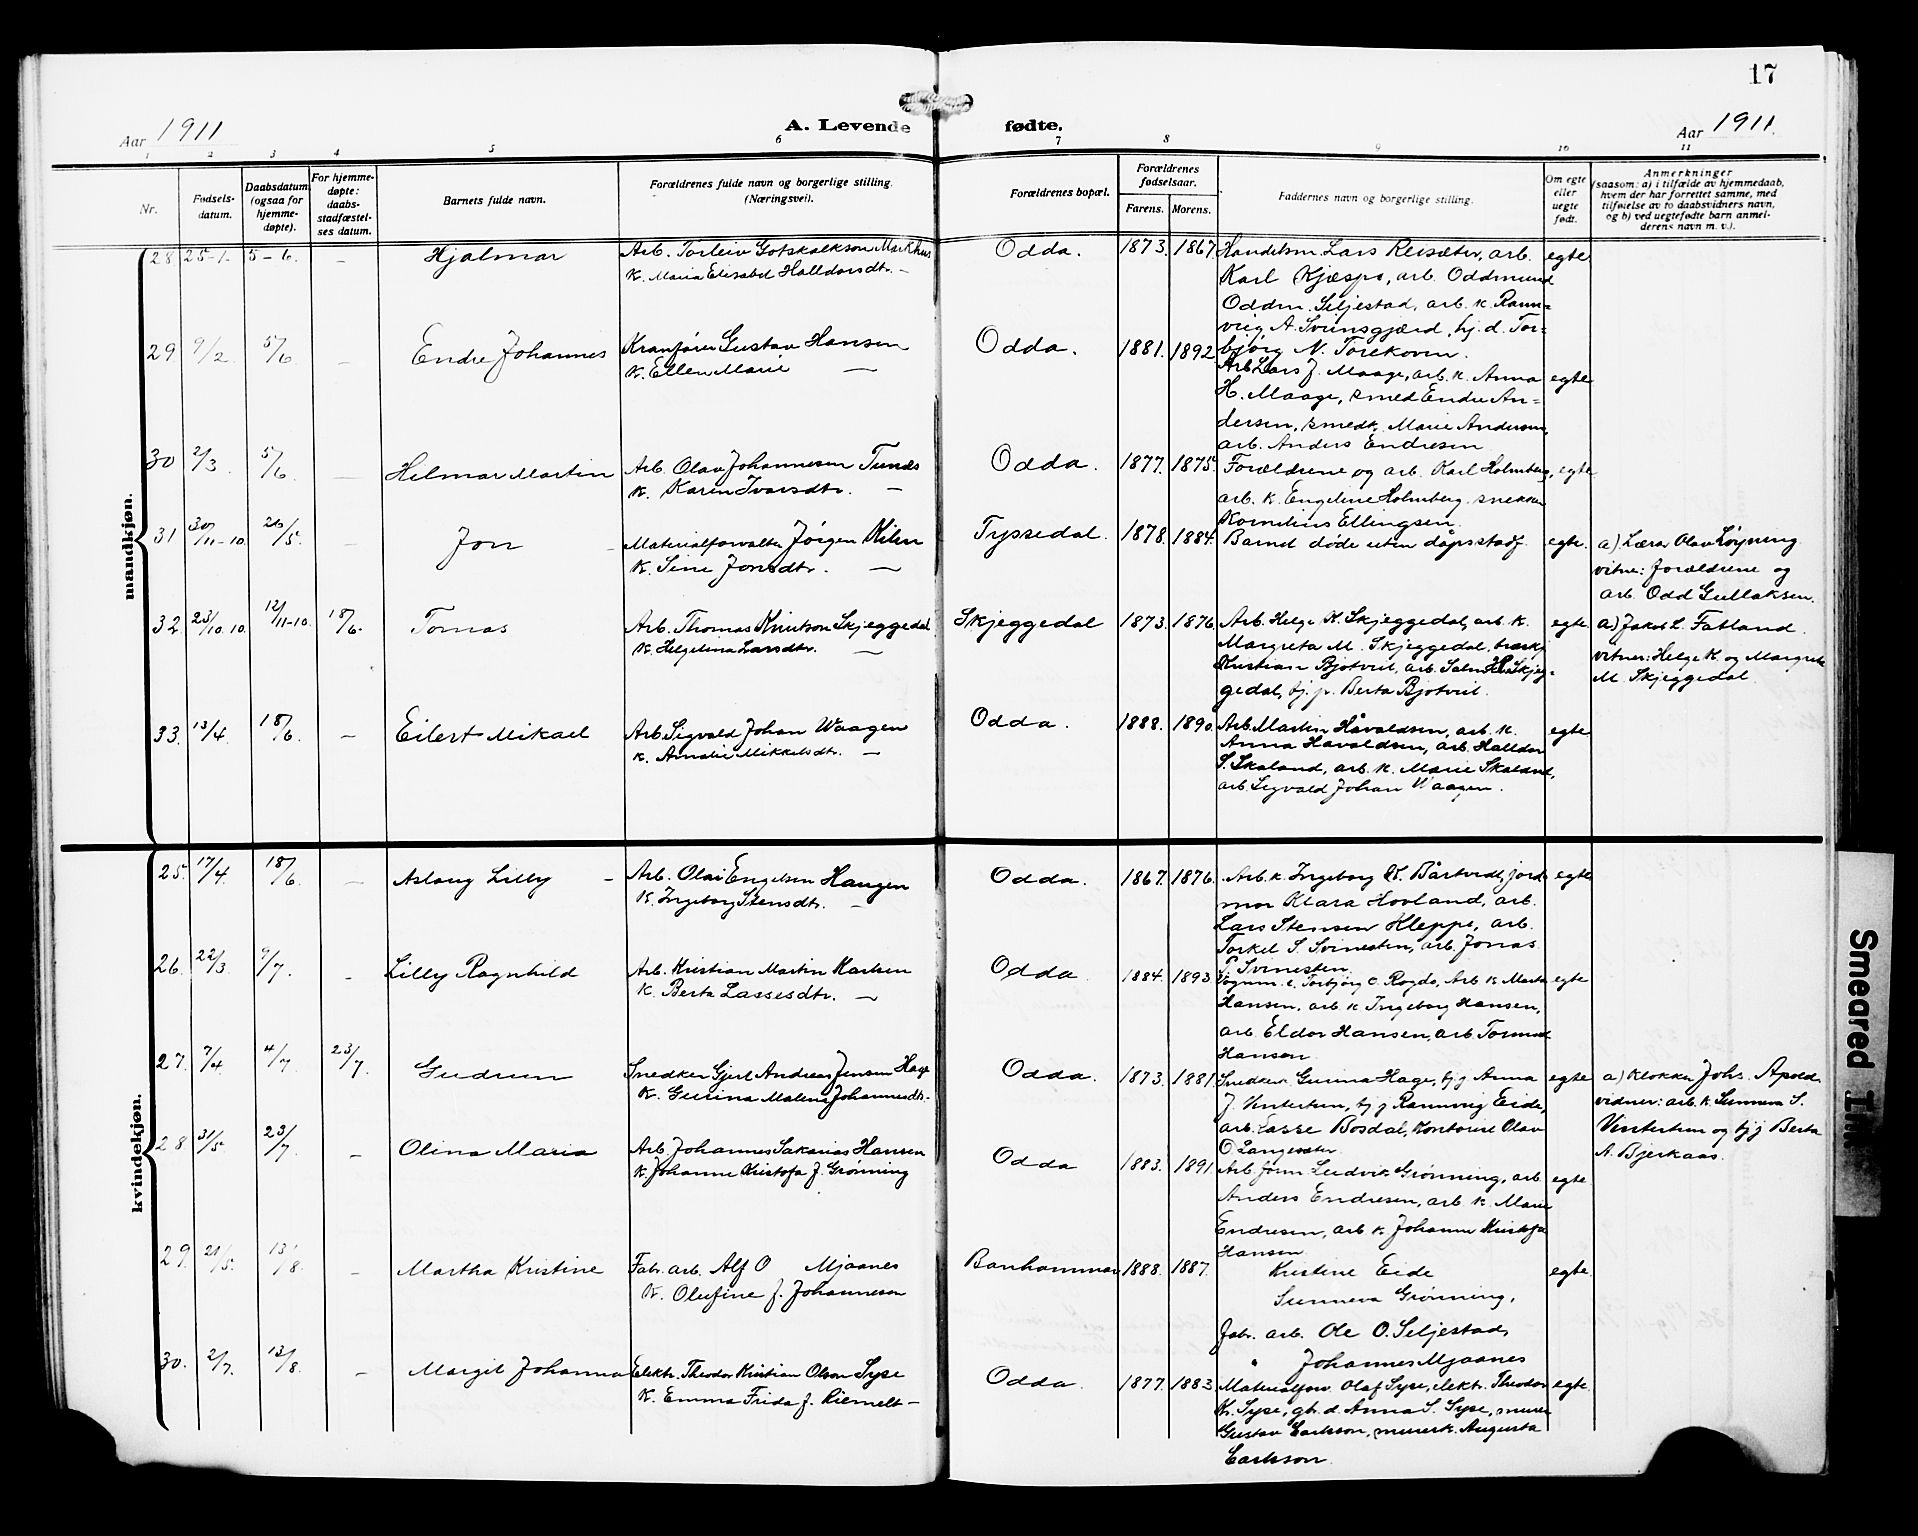 17
Aar 1911
A. Levende fødte.
Aar 1911.
1 2 3 4 5 6 7 8 9 10 11
Nr.
Fødsels-
datum.
Daabsdatum
(ogsaa for
hjemme-
døpte).
For hjemme-
døpte:
daabs-
stadfæstel-
ses datum.
Barnets fulde navn.
Forældrenes fulde navn og borgerlige stilling.
(Næringsvei).
Forældrenes bopæl.
Forældrenes
fødselsaar.
Farens. Morens.
Faddernes navn og borgerlige stilling.
Om egte
eller
uegte
født.
Anmerkninger
(saasom: a) i tilfælde av hjemmedaab,
hvem der har forrettet samme, med
tilføielse av to daabsvidners navn,
og b) ved uegtefødte barn anmel-
derens navn m. v.).
mandkjøn.
28 25-1- 5-6. - Hjalmar
Arb. Torleiv Gotskalkson Markhus
K. Maria Elisabet Halldorsdtr. -
Odda. 1873. 1867.
Handelsm. Lars Reisæter, arb.
Karl Kjæspe, arb. Oddmund
Oddm. Seljestad, arb. k. Rann-
veig A. Svinsgjærd, hj. d. Tor-
bjørg N. Torekoven.
egte
29 9/2 5/6 - Endre Johannes
Kranfører Gustav Hansen
K. Ellen Marie -
Odda. 1881. 1892.
Arb. Lars J. Maage, arb. k. Anna
H. Maage, smed Endre An-
dersen, smedk. Marie Andersen,
arb. Anders Endresen
egte
30 2/3. 5/6. - Helmar Martin
Arb. Olav Johannesen Tunæs
K. Karen Ivarsdtr. -
Odda. 1877. 1875.
Forældrene og arb. Karl Holmberg,
arb. k. Engeline Holmberg. snekker
Kornelius Ellingsen.
egte
31 30/11-10. 26/5. - Jon -
Materialforvalter Jørgen Kilen
K. Sine Jonsdtr. -
Tyssedal. 1878. 1884.
Barnet døde uten dåpsstadf.
egte.
a) Lærer Olav Løyning
vitne: forældrene og
arb. Odd Gullaksen.
32 23/10.10. 12/11-10. 18/6. Tomas
Arb. Thomas Knutson Skjeggedal
K. Helgelina Larsdtr. -
Skjeggedal 1873. 1876.
Arb. Helge K. Skjeggedal, arb. k.
Margreta M. Skjeggedal,
Kristian Bjotveit, arb. Skjeg-
gedal, Berta Bjotveit.
egte
a) Jakob L. Fatland.
vitner: Helge K. og Margrete
M. Skjeggedal
33. 13/4. 18/6. - Eilert Mikael
Arb. Sigvald Johan Waagen
K. Amalie Mikkelsdtr. -
Odda. 1888. 1890.
Arb. Martin Håvaldsen, arb. k.
Anna Håvaldsen, arb. Halldor
S. Skaland, arb. k. Marie Skaland,
arb. Sigvald Johan Waagen.
egte
kvindekjøn.
25. 17/4. 18/6. - Aslaug Lilly -
Arb. Olai Engelsen Haugen
K. Ingeborg Stensdtr. -
Odda. 1867. 1876.
Arb. k. Ingeborg K. Båstveit, jord-
mor Klara Hovland, arb.
Lars Stensen Kleppe, arb.
Torkel S. Svinesten, arb. Jonas
T. Svinesten.
egte
26. 22/3. 9/7. - Lilly Ragnhild
Arb. Kristian Martin Karlsen
K. Berta Lassesdtr. -
Odda 1884. 1893.
Torbjørg O. Ragde, Arb. k. Marta
Hansen, arb. k Ingeborg Hansen,
arb. Eldor Hansen, arb. Tormod
Hansen
egte
27. 7/4 4/7 23/7. Gudrun
Snedker Gjert Andreas Jensen Hage
K. Gurina Malena Johannesdtr.
Odda. 1873. 1881.
Snedker. Gunna Hage, Anna
J. Vintertun, Rannveig Eide,
arb. Lasse Bosdal, Kontorist Olav
O. Langesæter.
egte
a) Klokker Johs. Apold
vidner: arb. k. Sunneva S.
Vintertun og Berta
A. Bjerkaas.
28 31/5. 23/7. - Olina Maria
Arb. Johannes Sakarias Hansen
K. Johanne Kristofa f. Grønning
Odda 1883. 1891.
Arb. form. Ludvik Grønning, arb.
Anders Endresen, arb. k. Marie
Endresen, arb. k. Johanne Kristofa
Hansen
egte.
29. 21/5. 13/8. - Martha Kristine
Fabr. arb. Alf O Mjaanes
K. Olufine f. Johannesen
1888. 1887.
Kristine Eide
Sunneva Grønning,
Fabr. arb. Ole O. Seljestad,
" Johannes Mjaanes
egte.
30. 2/7. 13/8. - Margit Johanna
Elektr. Theodor Kristian Olson Syse
K. Emma Frida f. Riemelt -
Odda. 1877. 1883.
Materialforv. Olaf Syse, elektr. Theodor
K. Syse, gb. d. Anna S. Syse, murer
Gustav Carlsson, murerk. Augusta
Carlsson.
egte.
Smeared